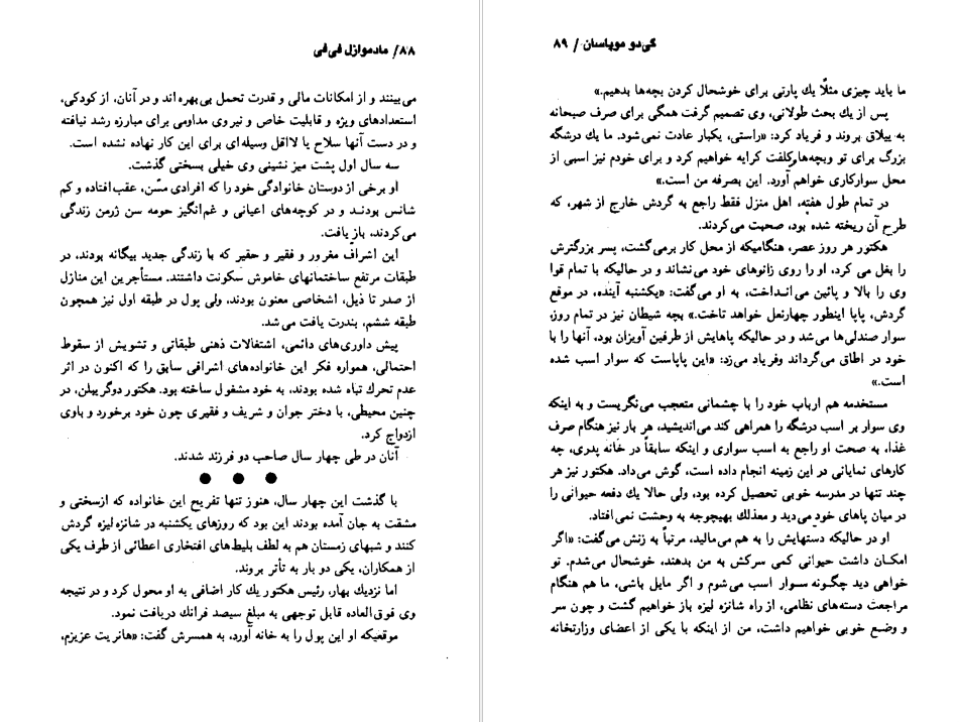 ۸۸/ مادموازل فی‌فی
می‌بینند و از امکانات مالی و قدرت تحمل بی‌بهره اند و در آنان، از کودکی،
استعدادهای ویژه و قابلیت خاص و نیروی مداومی برای مبارزه رشد نیافته
و در دست آنها سلاح یا لااقل وسیله‌ای برای این کار نهاده نشده است.
سه سال اول پشت میز نشینی وی خیلی بسختی گذشت.
او برخی از دوستان خانوادگی خود را که افرادی مسّن، عقب‌افتاده و کم
شانس بودند و در کوچه‌های اعیانی و غم‌انگیز حومه سن ژرمن زندگی
می‌کردند، باز یافت.
این اشراف مغرور و فقیر و حقیر که با زندگی جدید بیگانه بودند، در
طبقات مرتفع ساختمانهای خاموش سکونت داشتند. مستأجرین این منازل
از صدر تا ذیل، اشخاصی معنون بودند، ولی پول در طبقه اول نیز همچون
طبقه ششم، بندرت یافت می‌شد.
پیش داوری‌های دائمی، اشتغالات ذهنی طبقاتی و تشویش از سقوط
احتمالی، همواره فکر این خانواده‌های اشرافی سابق را که اکنون در اثر
عدم تحرك تباه شده بودند، به خود مشغول ساخته بود. هکتور دوگریبلن، در
چنین محیطی، با دختر جوان و شریف و فقیری چون خود برخورد و باوی
ازدواج کرد.
آنان در طی چهار سال صاحب دو فرزند شدند.
● ● ●
با گذشت این چهار سال، هنوز تنها تفریح این خانواده که ازسختی و
مشقت به جان آمده بودند این بود که روزهای یکشنبه در شانزه لیزه گردش
کنند و شبهای زمستان هم به لطف بلیط‌های افتخاری اعطائی از طرف یکی
از همکاران، یکی دو بار به تأتر بروند.
اما نزدیك بهار، رئیس هکتور یك کار اضافی به او محول کرد و در نتیجه
وی فوق‌العاده قابل توجهی به مبلغ سیصد فرانك دریافت نمود.
موقعیکه او این پول را به خانه آورد، به همسرش گفت: «هانریت عزیزم،
گی‌دو موپاسان / ۸۹
ما باید چیزی مثلاً یك پارتی برای خوشحال کردن بچه‌ها بدهیم.»
پس از یك بحث طولانی، وی تصمیم گرفت همگی برای صرف صبحانه
به ییلاق بروند و فریاد کرد: «راستی، یکبار عادت نمی‌شود. ما یك درشگه
بزرگ برای تو وبچه‌ها وکلفت کرایه خواهیم کرد و برای خودم نیز اسبی از
محل سوارکاری خواهم آورد. این بصرفه من است.»
در تمام طول هفته، اهل منزل فقط راجع به گردش خارج از شهر، که
طرح آن ریخته شده بود، صحبت می‌کردند.
هکتور هر روز عصر، هنگامیکه از محل کار برمی‌گشت، پسر بزرگترش
را بغل می کرد، او را روی زانوهای خود می‌نشاند و در حالیکه با تمام قوا
وی را بالا و پائین می‌انداخت، به او می‌گفت: «یکشنبه آینده، در موقع
گردش، پاپا اینطور چهارنعل خواهد تاخت.» بچه شیطان نیز در تمام روز،
سوار صندلی‌ها می‌شد و در حالیکه پاهایش از طرفین آویزان بود، آنها را با
خود در اطاق می‌گرداند وفریاد می‌زد: «این پاپاست که سوار اسب شده
است.»
مستخدمه هم ارباب خود را با چشمانی متعجب می‌نگریست و به اینکه
وی سوار بر اسب درشگه را همراهی کند می‌اندیشید، هر بار نیز هنگام صرف
غذا، به صحت او راجع به اسب سواری و اینکه سابقاً در خانه پدری، چه
کارهای نمایانی در این زمینه انجام داده است، گوش می‌داد. هکتور نیز هر
چند تنها در مدرسه خوبی تحصیل کرده بود، ولی حالا یك دفعه حیوانی را
در میان پاهای خود می‌دید و معذلك بهیچوجه به وحشت نمی‌افتاد.
او در حالیکه دستهایش را به هم می‌مالید، مرتباً به زنش می‌گفت: «اگر
امکان داشت حیوانی کمی سرکش به من بدهند، خوشحال می‌شدم. تو
خواهی دید چگونه سوار اسب می‌شوم و اگر مایل باشی، ما هم هنگام
مراجعت دسته‌های نظامی، از راه شانزه لیزه باز خواهیم گشت و چون سر
و وضع خوبی خواهیم داشت، من از اینکه با یکی از اعضای وزارتخانه